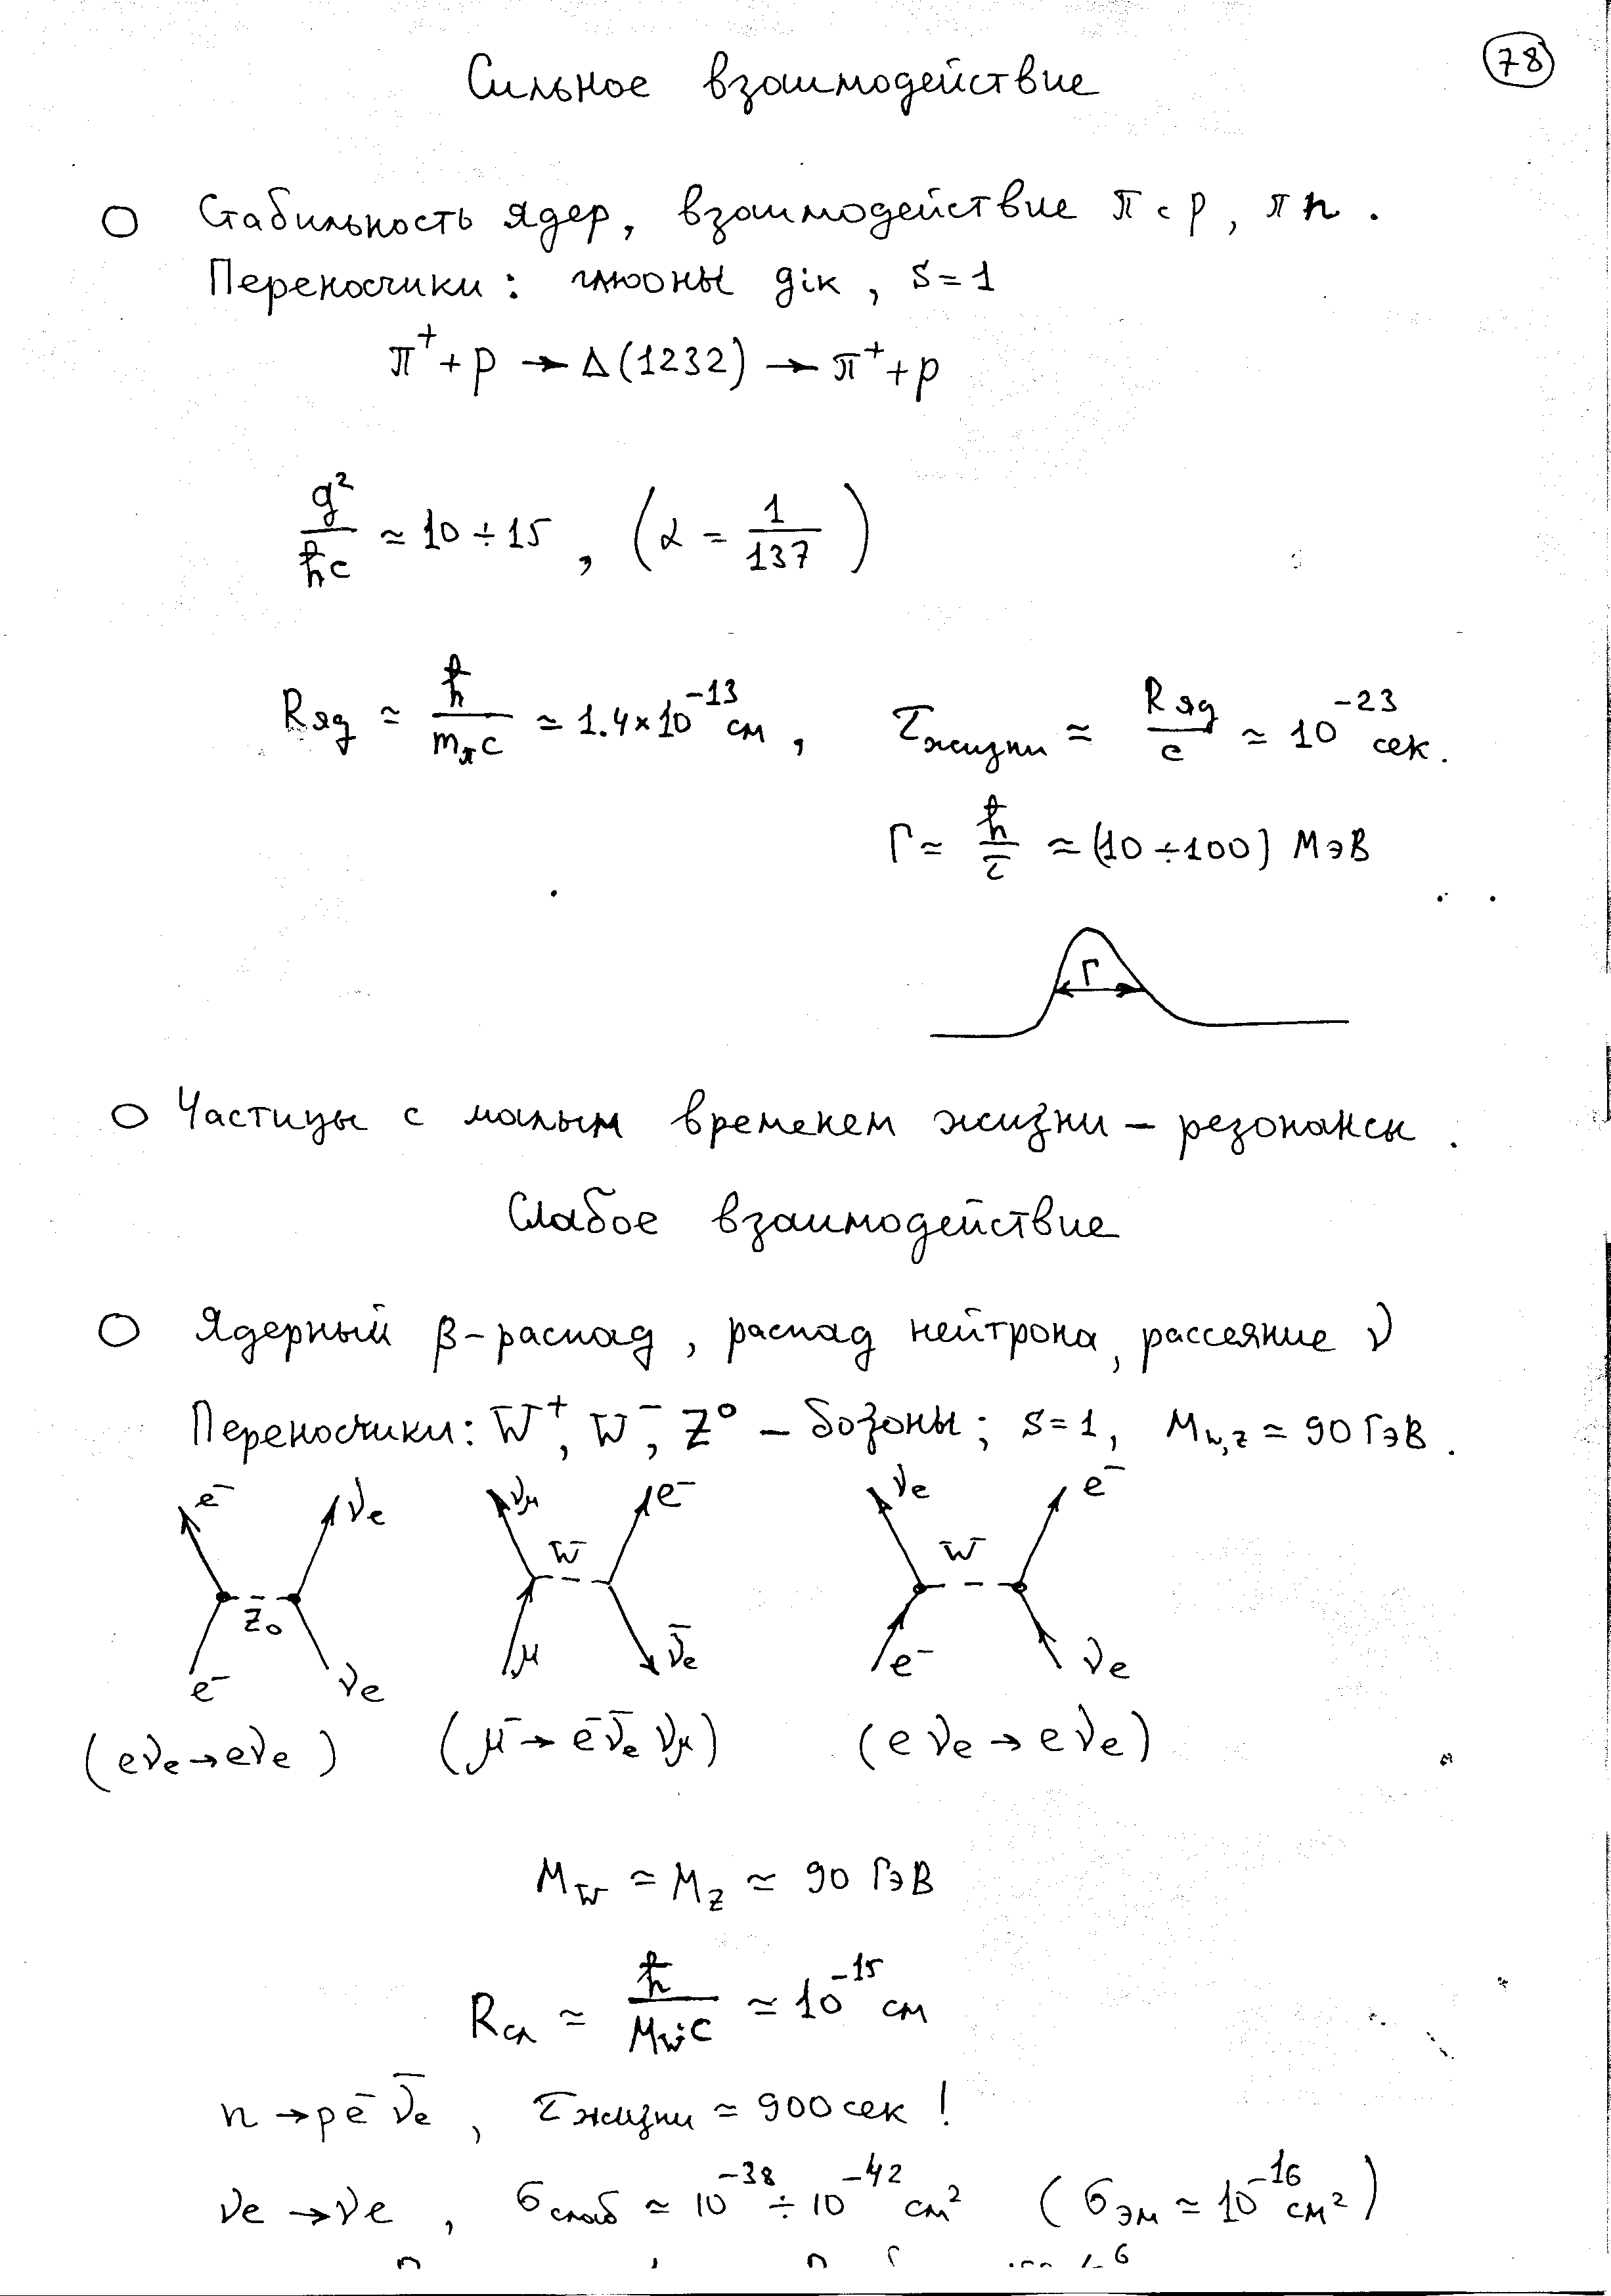 78
Сильное взаимодействие
○ Стабильность ядер, взаимодействие π с p, π n.
Переносчики: глюоны gik, S=1
π⁺+p → Δ(1232) → π⁺+p
g²/ħc ≃ 10÷15, (α = 1/137)
Rяд ≃ ħ/mπc ≃ 1.4×10⁻¹³ см, τжизни ≃ Rяд/c ≃ 10⁻²³ сек.
Γ ≃ ħ/τ ≃ (10÷100) МэВ
Γ
○ Частицы с малым временем жизни – резонансы.
Слабое взаимодействие
○ Ядерный β-распад, распад нейтрона, рассеяние ν
Переносчики: W⁺, W⁻, Z⁰ – бозоны; S=1, Mw,z ≃ 90 ГэВ.
e⁻ νe νμ e⁻ νe e⁻
Z₀ W⁻ W⁻
e⁻ νe μ ν̄e e⁻ νe
(eνe→eνe) (μ⁻→e⁻ν̄e νμ) (eνe→eνe)
MW ≃ MZ ≃ 90 ГэВ
Rсл ≃ ħ/MW·c ≃ 10⁻¹⁵ см
n → pe⁻ν̄e, τжизни ≃ 900 сек!
νe → νe, σслаб ≃ 10⁻³⁸÷10⁻⁴² см² (σэм ≃ 10⁻¹⁶ см²)